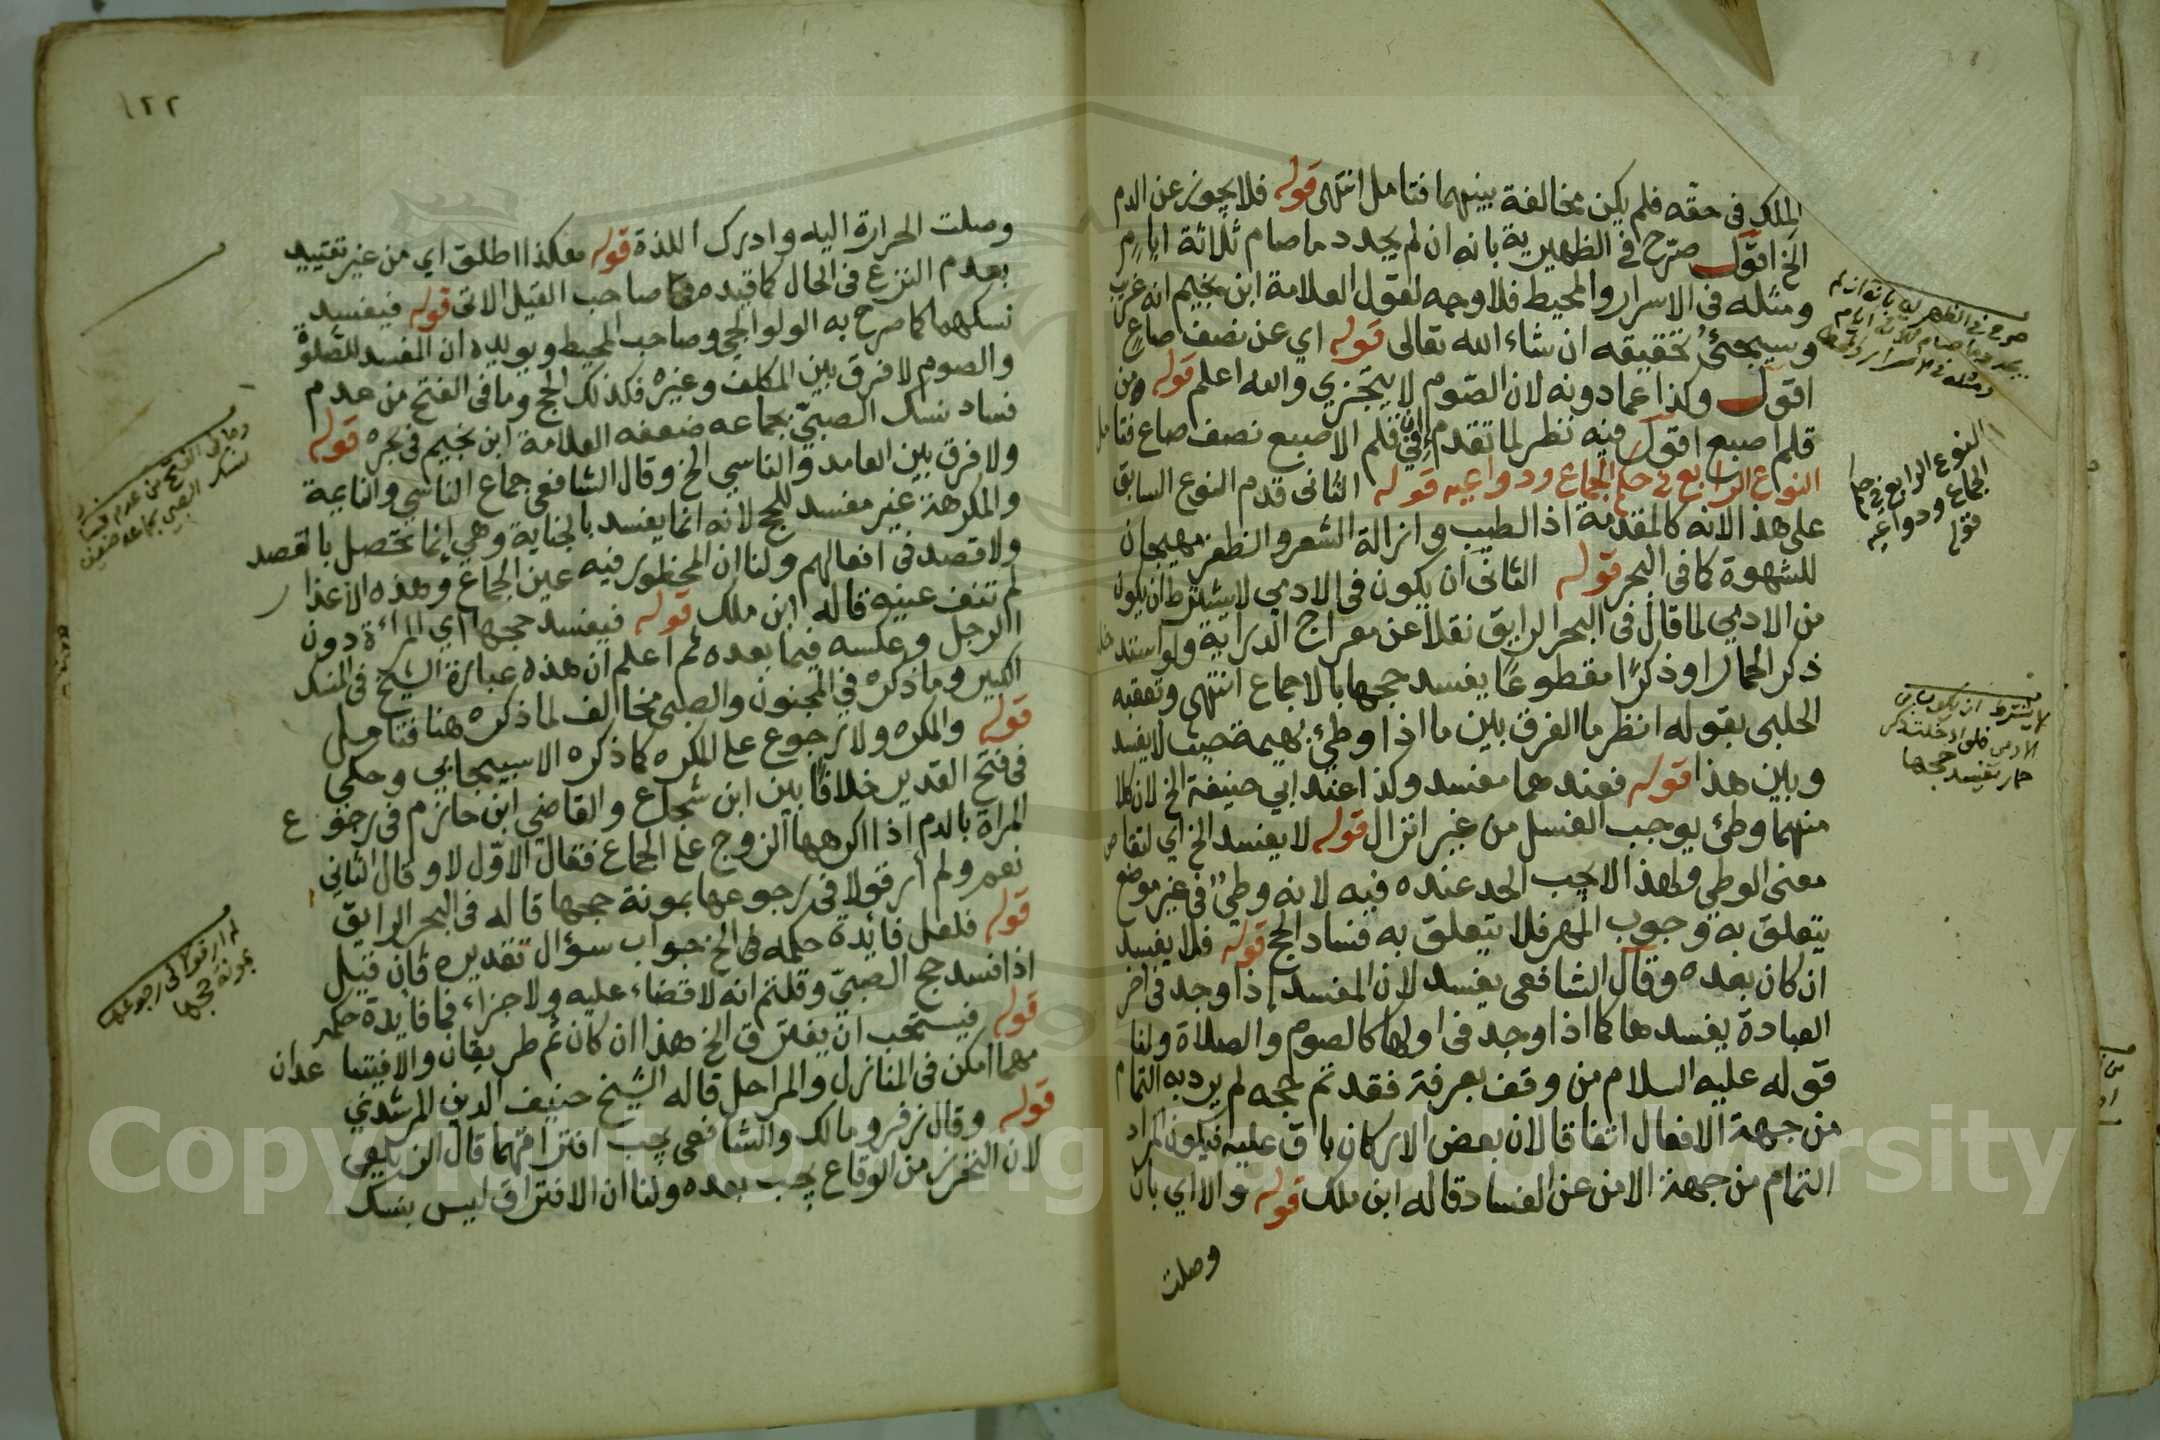 الملك في حقه فلم يكن مخالفة بينهما فتامل انتهى قوله فلا يجوز عن الدم
الخ اقول صرح في الظهيرية بانه ان لم يجدد ما صام ثلاثة ايام
ومثله في الاسرار والمحيط فلا وجه لقول العلامة ابن نجيم انه غريب
وسيجئ تحقيقه ان شاء الله تعالى قوله اي عن نصف صاع
اقول وكذا عما دونه لان الصوم لا يتجزي والله اعلم قوله ومن
قلم اصبع اقول فيه نظر لما تقدم ان في قلم الاصبع نصف صاع فتامل
النوع الرابع في حكم الجماع ودواعيه قوله الثاني قدم النوع السابق
على هذا لانه كالمقدمة اذ الطيب وازالة الشعر والظفر مهيجان
للشهوة كما في البحر قوله الثاني ان يكون في الادمي لا يشترط ان يكون
من الادمي لما قال في البحر الرايق نقلا عن معراج الدراية ولو استدخلت
ذكر الحمار او ذكرا مقطوعا يفسد حجها بالاجماع انتهى وتعقبه
الحلبي بقوله انظر ما الفرق بين ما اذا وطئ بهيمة حيث لا يفسد
وبين هذا قوله فعندهما مفسد وكذا عند ابي حنيفة الخ لان كلا
منهما وطئ يوجب الغسل من غير انزال قوله لا يفسد الخ اي لتقاصر
معنى الوطي ولهذا لا يجب الحد عنده فيه لانه وطئ في غير موضع
يتعلق به وجوب المهر فلا يتعلق به فساد الحج قوله فلا يفسد
ان كان بعده وقال الشافعي يفسد لان المفسد اذا وجد في اخر
العبادة يفسدها كما اذا وجد في اولها كالصوم والصلاة ولنا
قوله عليه السلام من وقف بعرفة فقد تم حجه لم يرد به التمام
من جهة الافعال اتفاقا لان بعض الاركان باق عليه فيكون المراد
التمام من جهة الامن عن الفساد قاله ابن ملك قوله والا اي بان
وصلت
صرح في الظهيرية بانه ان لم
يجدد ما صام ثلاثة ايام
ومثله في الاسرار
النوع الرابع في حكم
الجماع ودواعيه
قوله
لا يشترط ان يكون من
الادمي فلو ادخلت ذكر
حمار يفسد حجها
١٢٢
وصلت الحرارة اليه وادرك اللذة قوله هكذا اطلق اي من غير تقييد
بعدم النزع في الحال كما قيده صاحب القيل الاتي قوله فيفسد
نسكهما كما صرح به الولوالجي وصاحب المحيط ويويده ان المفسد للصلوة
والصوم لا فرق بين المكلف وغيره فكذلك الحج وما في الفتح من عدم
فساد نسك الصبي بجماعه ضعفه العلامة ابن نجيم في بحره قوله
ولا فرق بين العامد والناسي الخ وقال الشافعي جماع الناسي والنايمة
والمكرهة غير مفسد للحج لانه انما يفسد بالجناية وهي انما تحصل بالقصد
ولا قصد في افعالهم ولنا ان المحظور فيه عين الجماع وهذه الاعذار
لم تنف عينه قاله ابن ملك قوله فيفسد حجها اي المراة دون
الرجل وعكسه فيما بعده ثم اعلم ان هذه عبارة الشيخ في المنسك
الكبير وما ذكره في المجنون والصبي مخالف لما ذكره هنا فتامل
قوله والمكره ولا رجوع على المكره كما ذكره الاسبيجابي وحكي
في فتح القدير خلافا بين ابن شجاع والقاضي ابن حازم في رجوع
المراة بالدم اذا اكرهها الزوج على الجماع فقال الاول لا وقال الثاني
نعم ولم أر قولا في رجوعها بمونة حجها قاله في البحر الرايق
قوله فلعل فائدة حكمه الخ جواب سؤال تقديره فان قيل
اذا فسد حج الصبي وقلتم انه لا قضاء عليه ولا جزاء فما فايدة حكم
قوله فيستحب ان يفترق الخ هذا ان كان ثم طريقان والا فيتباعدان
مهما امكن في المنازل والمراحل قاله الشيخ حنيف الدين المرشدي
قوله وقال زفر ومالك والشافعي يجب افتراقهما قال الزيلعي
لان التحرز من الوقاع يجب بعده ولنا ان الافتراق ليس بنسك
وما في الفتح من عدم فساد
نسك الصبي بجماعه ضعيف
لم ار قولا في رجوعها
بمونة حجها
Copyright © King Saud University